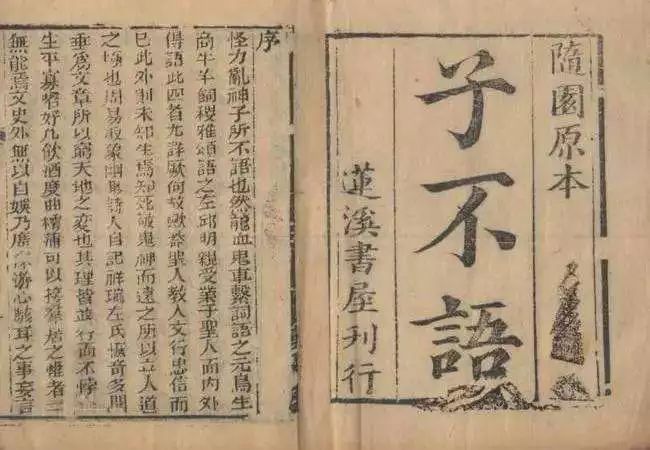 隨園原本
子不語
蓮溪書屋刊行
序
怪力亂神子所不語也然龍血鬼車繫詞語之元鳥生
商牛羊飼稷雅頌語之左邱明親受業于聖人而内外
傳語此四者尤詳厥何故歟蓋聖人教人文行忠信而
已此外則未知生焉知死敬鬼神而遠之所以立人道
之極也周易取象幽渺詩人自記祥瑞左氏恢奇多聞
垂爲文章所以窮天地之變也其理皆並行而不悖
生平寡嗜好凡飲酒度曲樗蒲可以接羣居之懽者一
無能焉文史外無以自娛乃廣采游心駭耳之事妄言